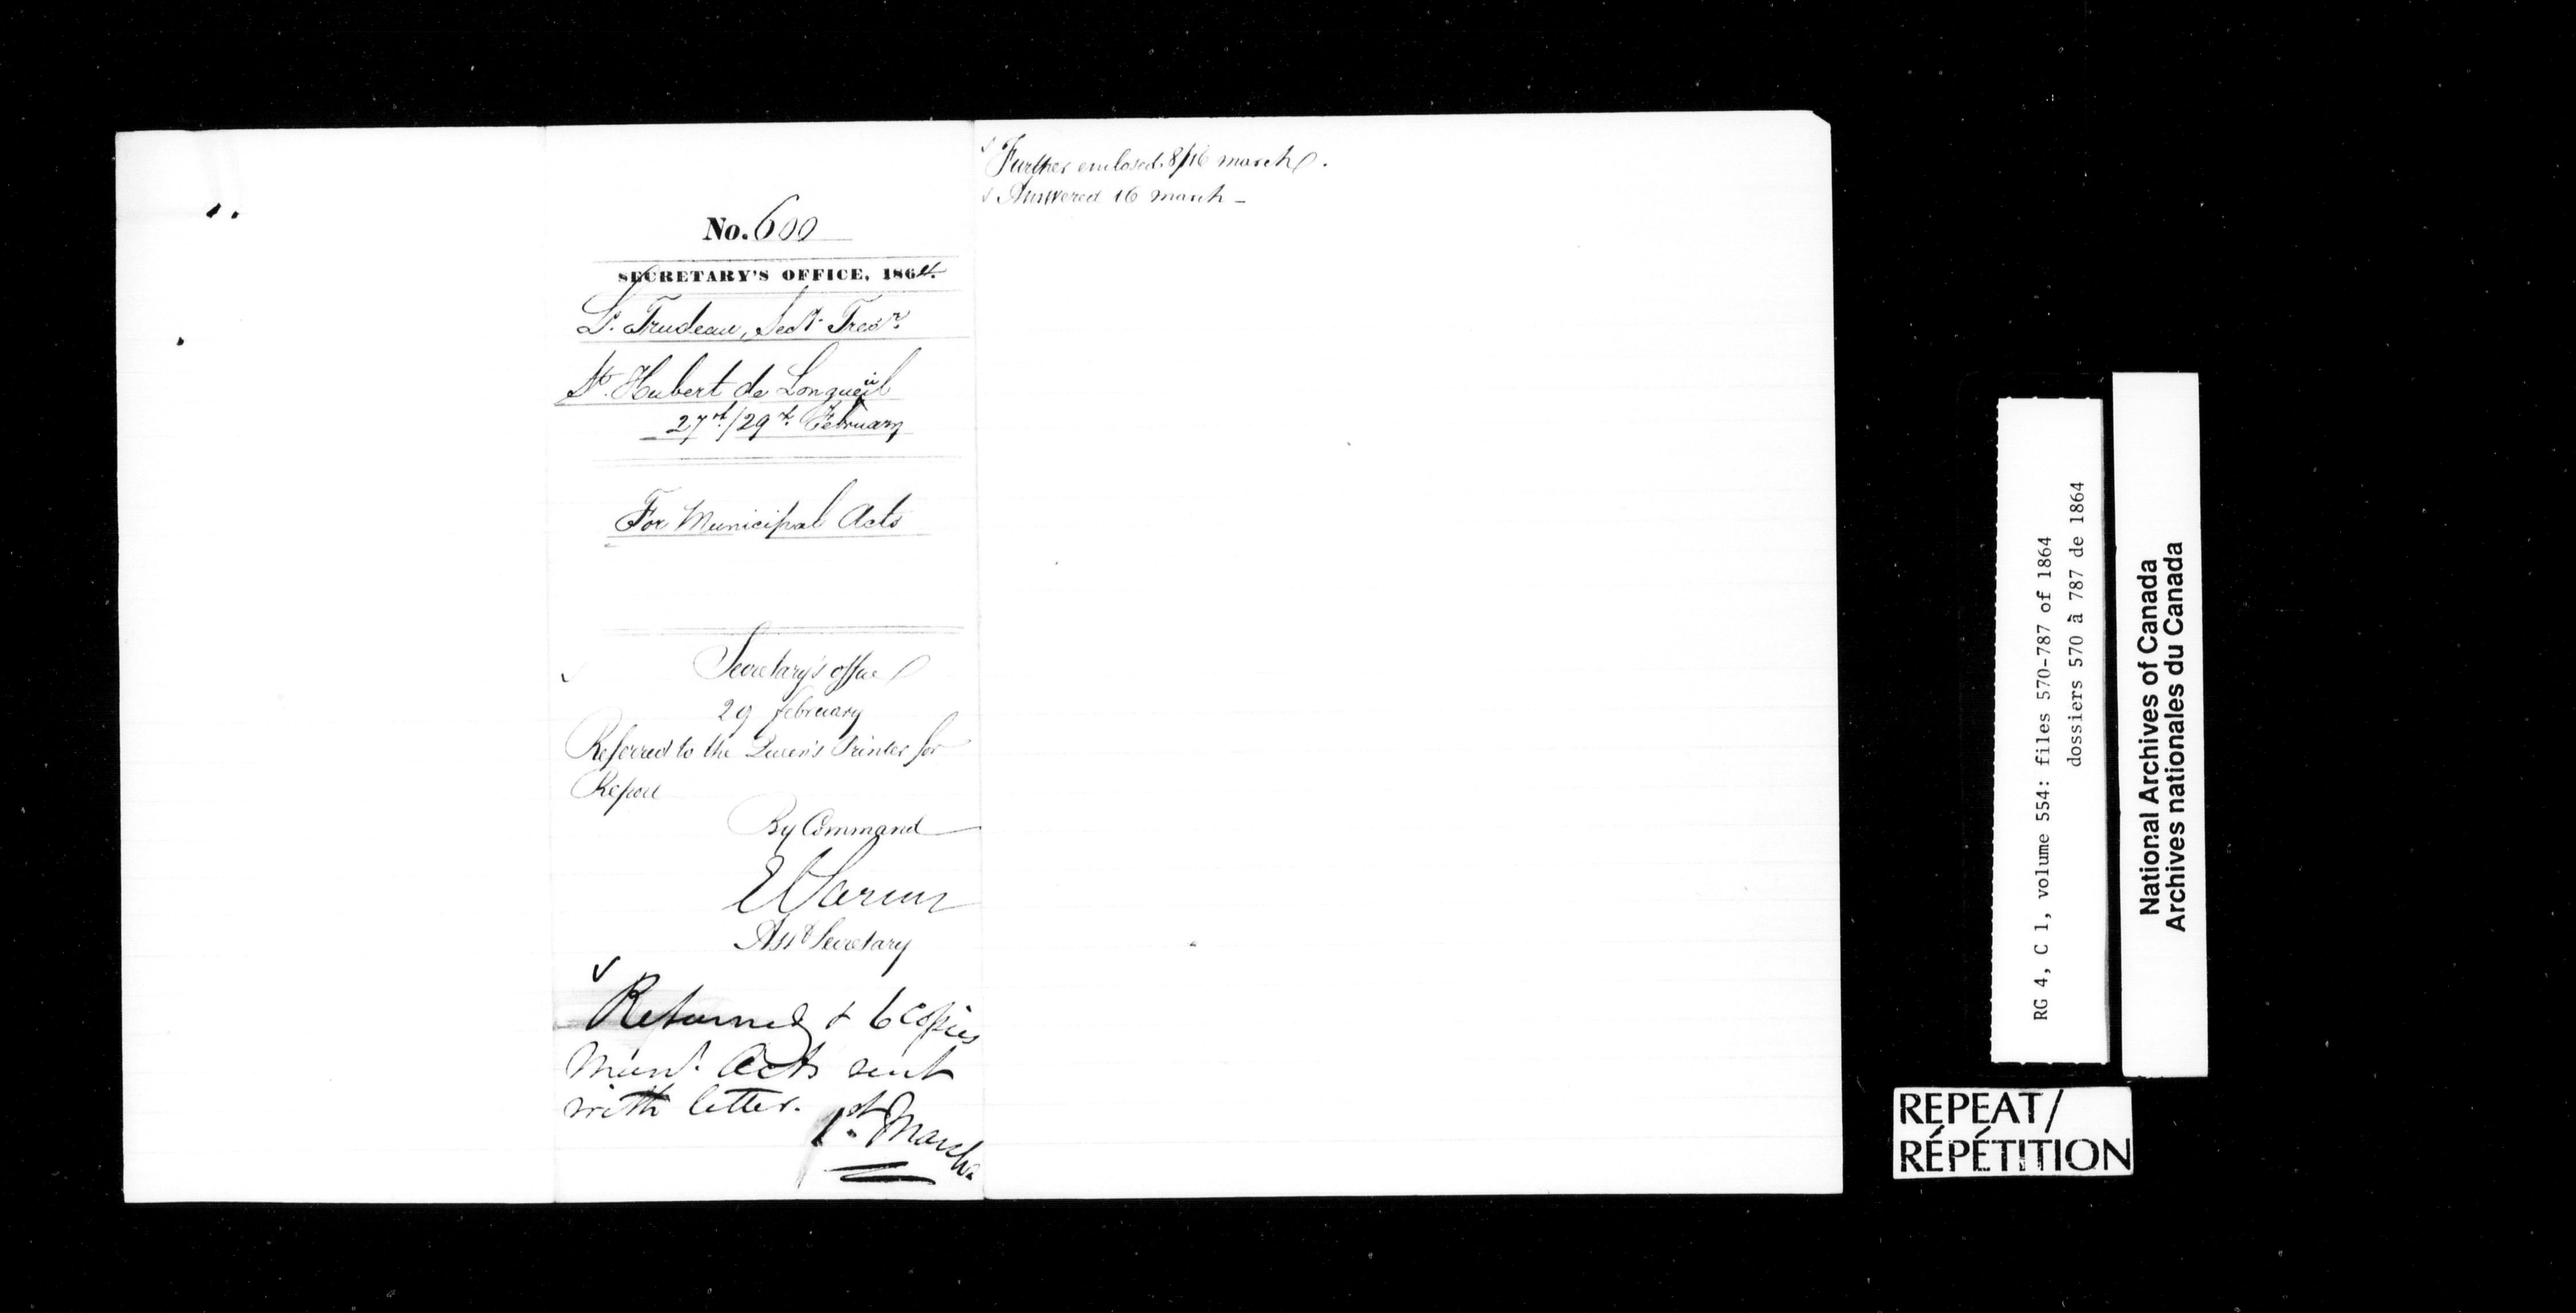 No. 600
SECRETARY'S OFFICE, 1864.
Ls. Trudeau, Secy. Tresr.
St. Hubert de Longueuil
27th/29th February
For Municipal Acts
Secretary's office
29 february
Referred to the Queen's Printer for
Report
By Command
Asst Secretary
Returned & 6 copies
Munl. Acts sent
with letter.
1st March.
Further enclosed 8/16 march.
Answered 16 march –
RG 4, C 1, volume 554: files 570-787 of 1864
dossiers 570 à 787 de 1864
National Archives of Canada
Archives nationales du Canada
REPEAT/
RÉPÉTITION